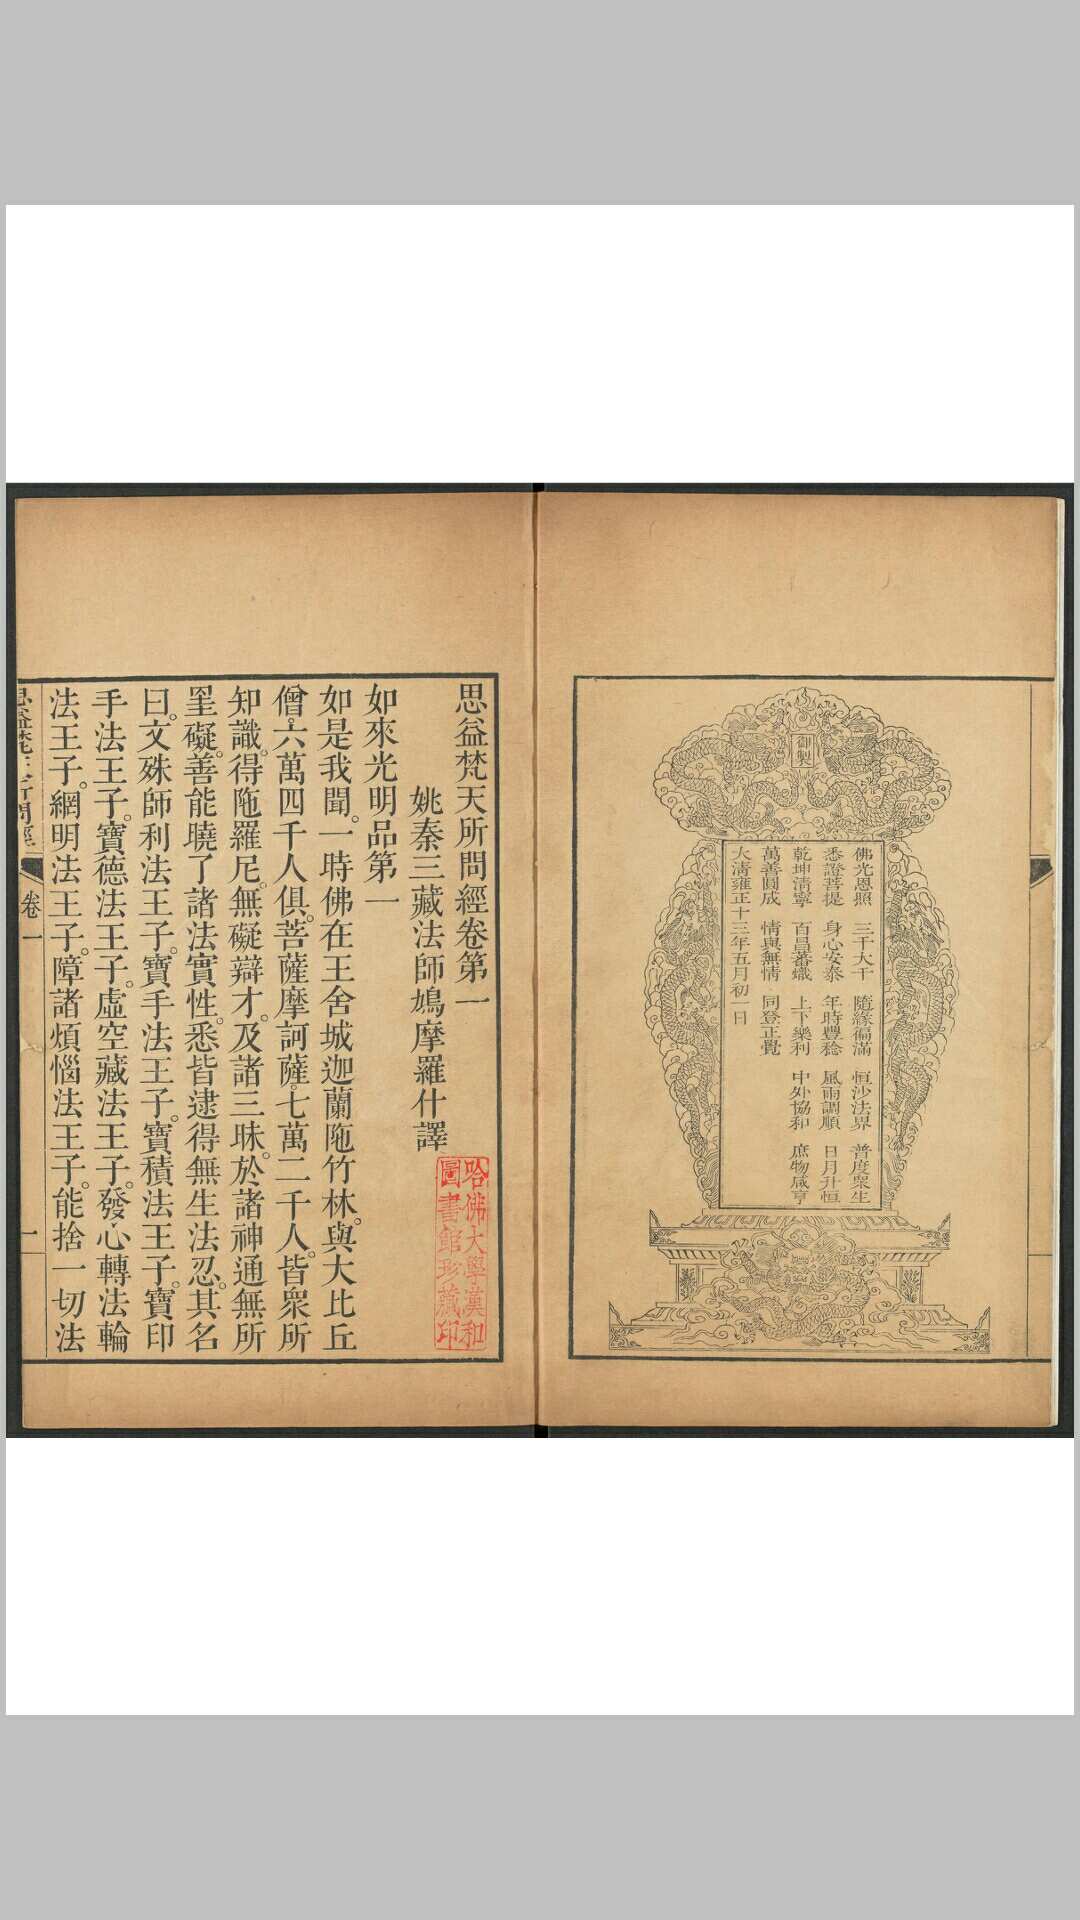 御製
佛光恩照 三千大千 隨緣徧滿 恒沙法界 普度眾生
悉證菩提 身心安泰 年時豐稔 風雨調順 日月升恒
乾坤清寧 百昌蕃熾 上下樂利 中外協和 庶物咸亨
萬善圓成 情與無情 同登正覺
大清雍正十三年五月初一日
思益梵天所問經卷第一
姚秦三藏法師鳩摩羅什譯
哈佛大學漢和
圖書館珍藏印
如來光明品第一
如是我聞。一時佛在王舍城迦蘭陁竹林。與大比丘
僧。六萬四千人俱。菩薩摩訶薩。七萬二千人。皆眾所
知識。得陁羅尼。無礙辯才。及諸三昧。於諸神通無所
罣礙。善能曉了諸法實性。悉皆逮得無生法忍。其名
曰。文殊師利法王子。寶手法王子。寶積法王子。寶印
手法王子。寶德法王子。虛空藏法王子。發心轉法輪
法王子。網明法王子。障諸煩惱法王子。能捨一切法
思益梵天所問經 卷一 一